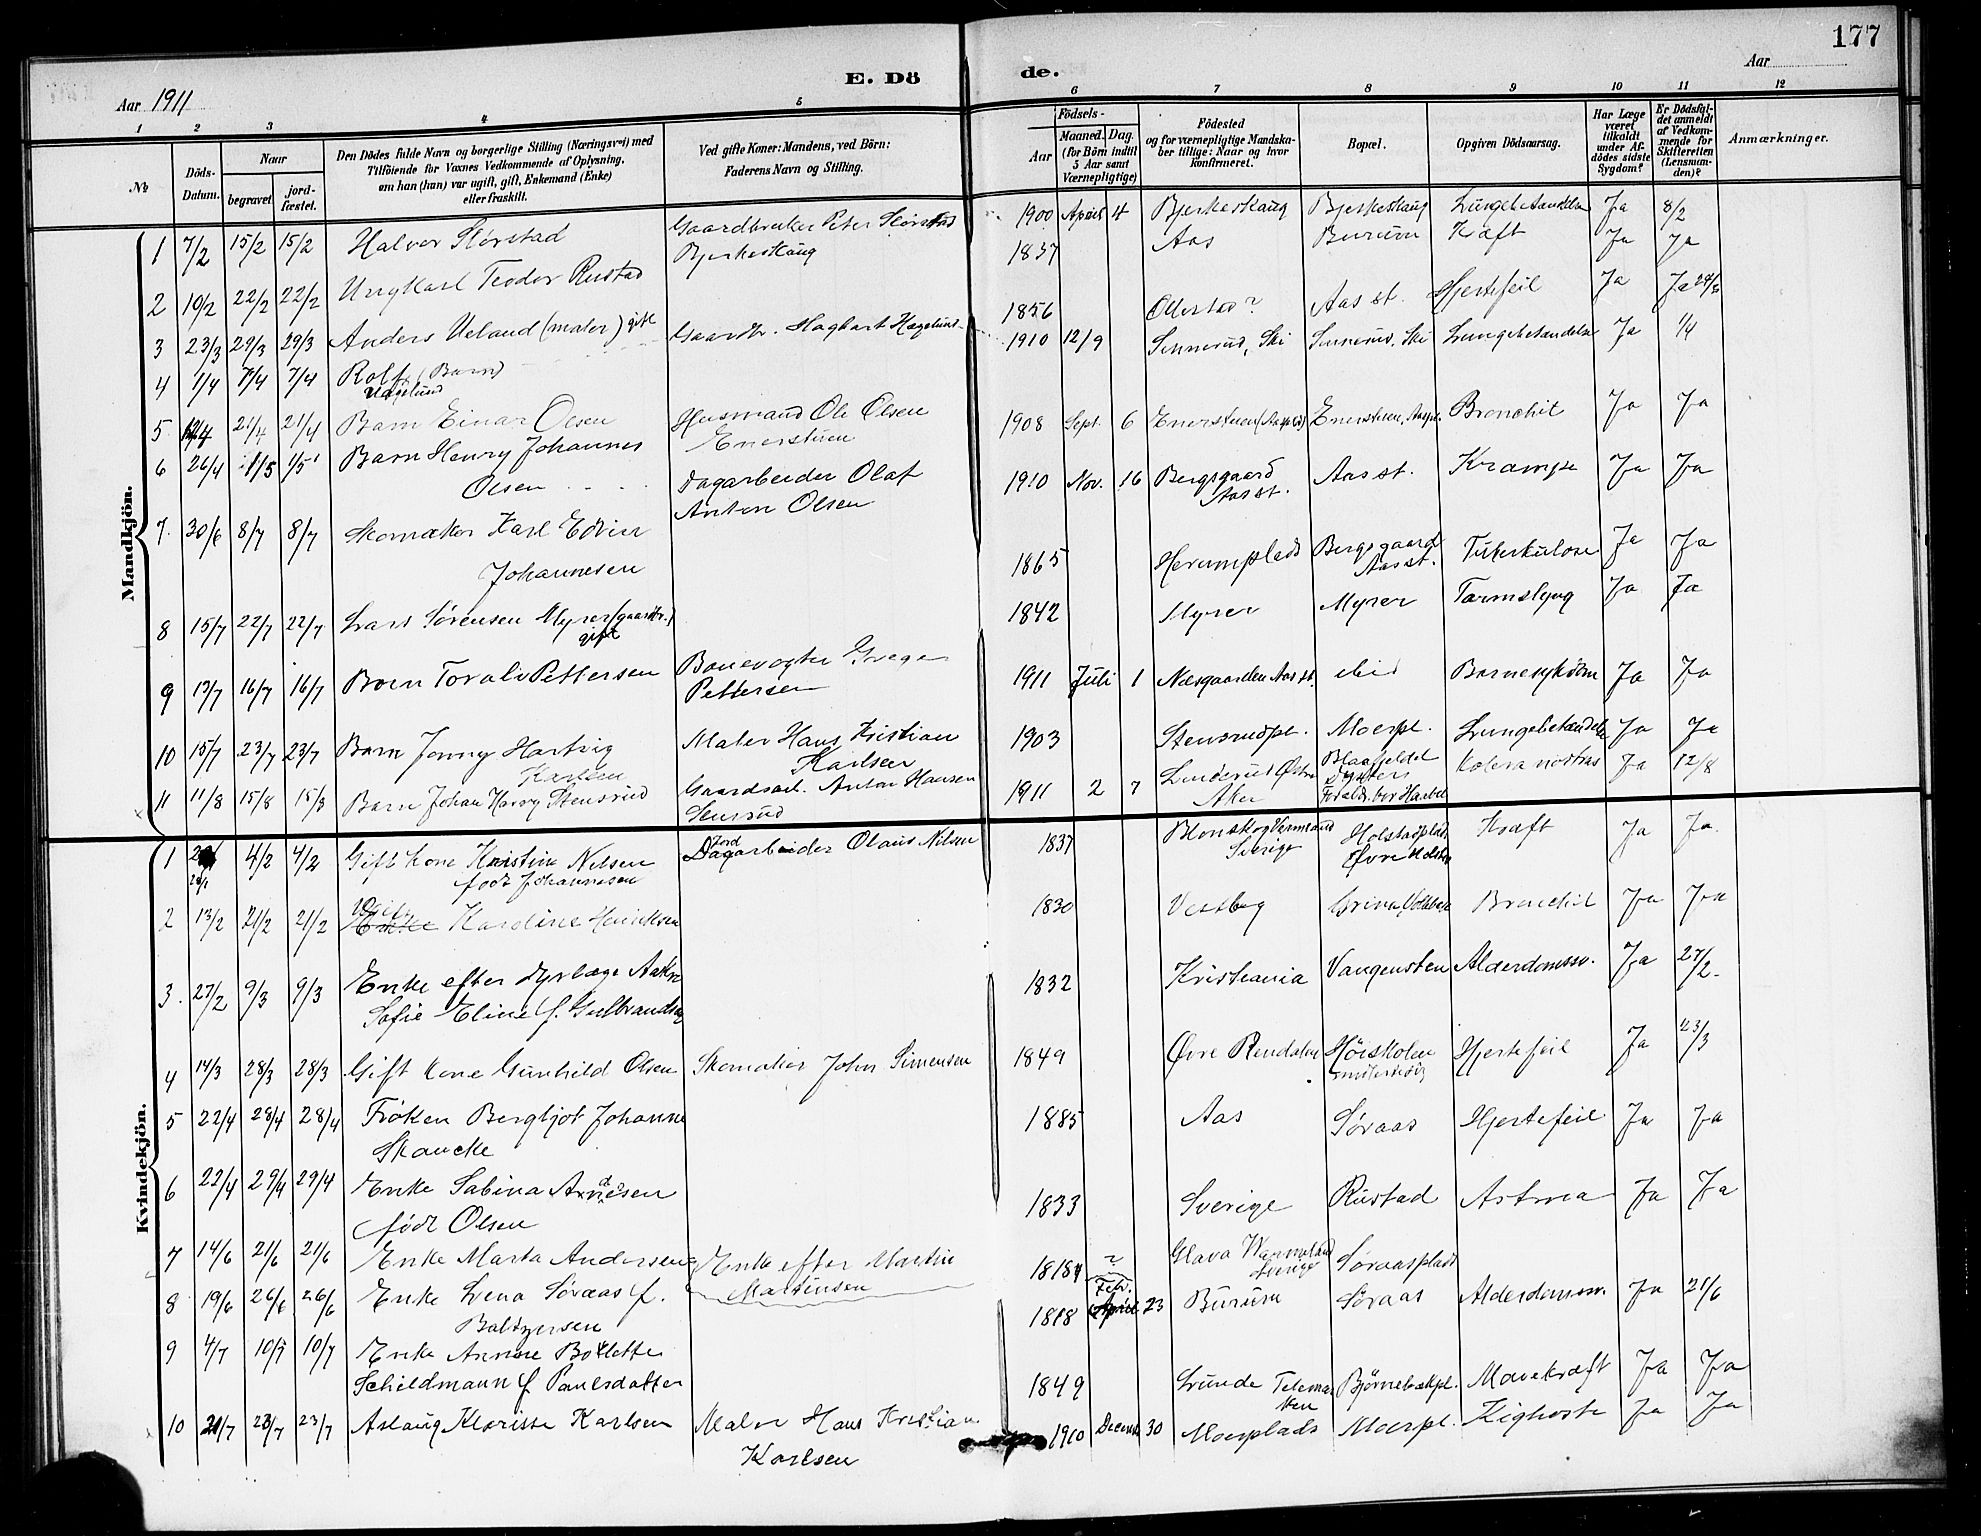 177
E. Dö
de.
Aar 1911
Aar
1 2 3 4 5 6 7 8 9 10 11 12
№
Döds-Datum.
Naar
begravet.
jordfæstet.
Den Dödes fulde Navn og borgerlige Stilling (Næringsvei) med
Tilföiende for Voxnes Vedkommende af Oplysning,
om han (hun) var ugift, gift, Enkemand (Enke)
eller fraskilt.
Ved gifte Koner: Mandens, ved Börn:
Faderens Navn og Stilling.
Födsels-
Aar
Maaned. Dag.
(for Börn indtil
5 Aar samt
Værnepligtige)
Födested
og for værnepligtige Mandska-
ber tillige: Naar og hvor
konfirmeret.
Bopæl.
Opgiven Dödsaarsag.
Har Læge
været
tilkaldt
under Af-
dödes sidste
Sygdom?
Er Dödsfal-
det anmeldt
af Vedkom-
mende for
Skifteretten
(Lensman-
den)?
Anmærkninger.
Mandkjön.
1 7/2 15/2 15/2 Halvor Størstad Gaardbruker Peter Størstad Bjerkeskaug 1900 April 4 Bjerkeskaug Bjerkeskaug Lungebetændelse Ja 8/2
2 10/2 22/2 22/2 Ungkarl Teodor Rustad 1837 Aas Burum Kræft Ja Ja
3 23/3 29/3 29/3 Anders Ueland (maler) gift 1856 Ollestad? Aas st. Hjertefeil Ja Ja
4 1/4 7/4 7/4 Rolf (Barn) Hægelund Gaardbr. Hagbart Hægelund 1910 12/9 Sennerud, Ski Sennerud, Ski Lungebetændelse Ja 1/4
5 21/4 21/4 Barn Einar Olsen Husmand Ole Olsen Enerstuen 1908 Sept. 6 Enerstuen Enerstuen, Bronchit Ja Ja
6 26/4 1/5 1/5 Barn Henry Johannes Olsen Dagarbeider Olaf Anton Olsen 1910 Nov. 16 Bergsgaard Aas st. Aas st. Krampe Ja Ja
7. 30/6 8/7 8/7 Skomaker Karl Edvin Johannesen 1865 Herumplads Bergsgaard Aas st. Tuberkulose Ja Ja
8 15/7 22/7 22/7 Lars Sørensen Myrer (gaardbr.) gift 1842 Myrer Myrer Tarmslyng Ja Ja
9 13/7 16/7 16/7 Barn Toralv Pettersen Banevogter Pettersen 1911 Juli 1 Næsgaarden Aas st. ibid Barnesykdom Ja Ja
10 15/7 23/7 23/7 Barn Jonny Hartvig Karlsen Maler Hans Kristian Karlsen 1903 Stensrudpl. Moerpl. Lungebetændelse Ja Ja
11 11/8 15/8 15/8 Barn Johan Harry Stensrud Gaardsarb. Anton Hansen Stensrud 1911 2 7 Linderud Østre Aker Blaafjeldet Kolera nostras Ja 12/8
Kvindekjön.
1 4/2 4/2 Gift Kone Kristine Nilsen født Johannesen Jord Dagarbeider Olaus Nilsen 1837 Blomskog Vermland Sverige Holstadplads Øvre Holstad Kræft Ja Ja
2 13/2 21/2 21/2 Ugift Enke Karoline Henriksen 1830 Vestby Bronchit Ja Ja
3. 27/2 9/3 9/3 Enke efter dyrlæge Sofie Eline f. Gulbrandsen 1832 Kristiania Vangensten Alderdomssv. Ja 27/2
4 14/3 28/3 28/3 Gift Kone Gunhild Olsen Skomaker John Simensen 1849 Øvre Rendalen Høiskolen Hjertefeil Ja 23/3
5 22/4 28/4 28/4 Frøken Bergljot Johanne Skancke 1885 Aas Søraas Hjertefeil Ja Ja
6 22/4 29/4 29/4 Enke Sabina født Olsen 1833 Sverige Rustad Astma Ja Ja
7 14/6 21/6 21/6 Enke Marta Andersen Enke efter Martin Martinsen ? Glava Wærmeland Sverige Søraasplads
8 19/6 26/6 26/6 Enke Lena Søraas f. Baltzersen 1818 Febr. April 23 Burum Søraas Alderdomssv. Ja 21/6
9 4/7 10/7 10/7 Enke Schildmann f. Paulsdatter 1849 Lunde Telemarken Bjørnebækpl. Mavekræft Ja Ja
10 21/7 23/7 23/7 Aslaug Klarisse Karlsen Maler Hans Kristian Karlsen 1910 Decemb. 30 Moerplads Moerpl. Kighoste Ja Ja